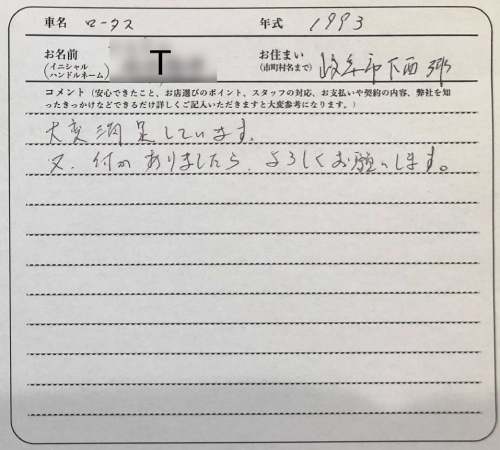 車名 ロータス 年式 1993
お名前 T お住まい 岐阜市下西郷
(イニシャル ハンドルネーム) (市町村名まで)
コメント(安心できたこと、お店選びのポイント、スタッフの対応、お支払いや契約の内容、弊社を知
ったきっかけなどできるだけ詳しくご記入いただきますと大変参考になります。)
大変満足しています.
又、何かありましたら、よろしくお願いします。